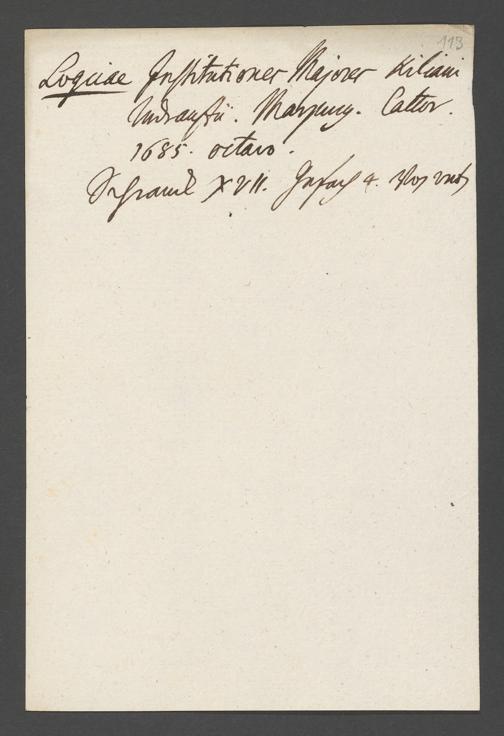 113
Logicae Institutiones Majores Kiliani
Rudrauffii. Marpurg. Cattor.
1685. octavo.
Schranck XVII. Gefach 4. No